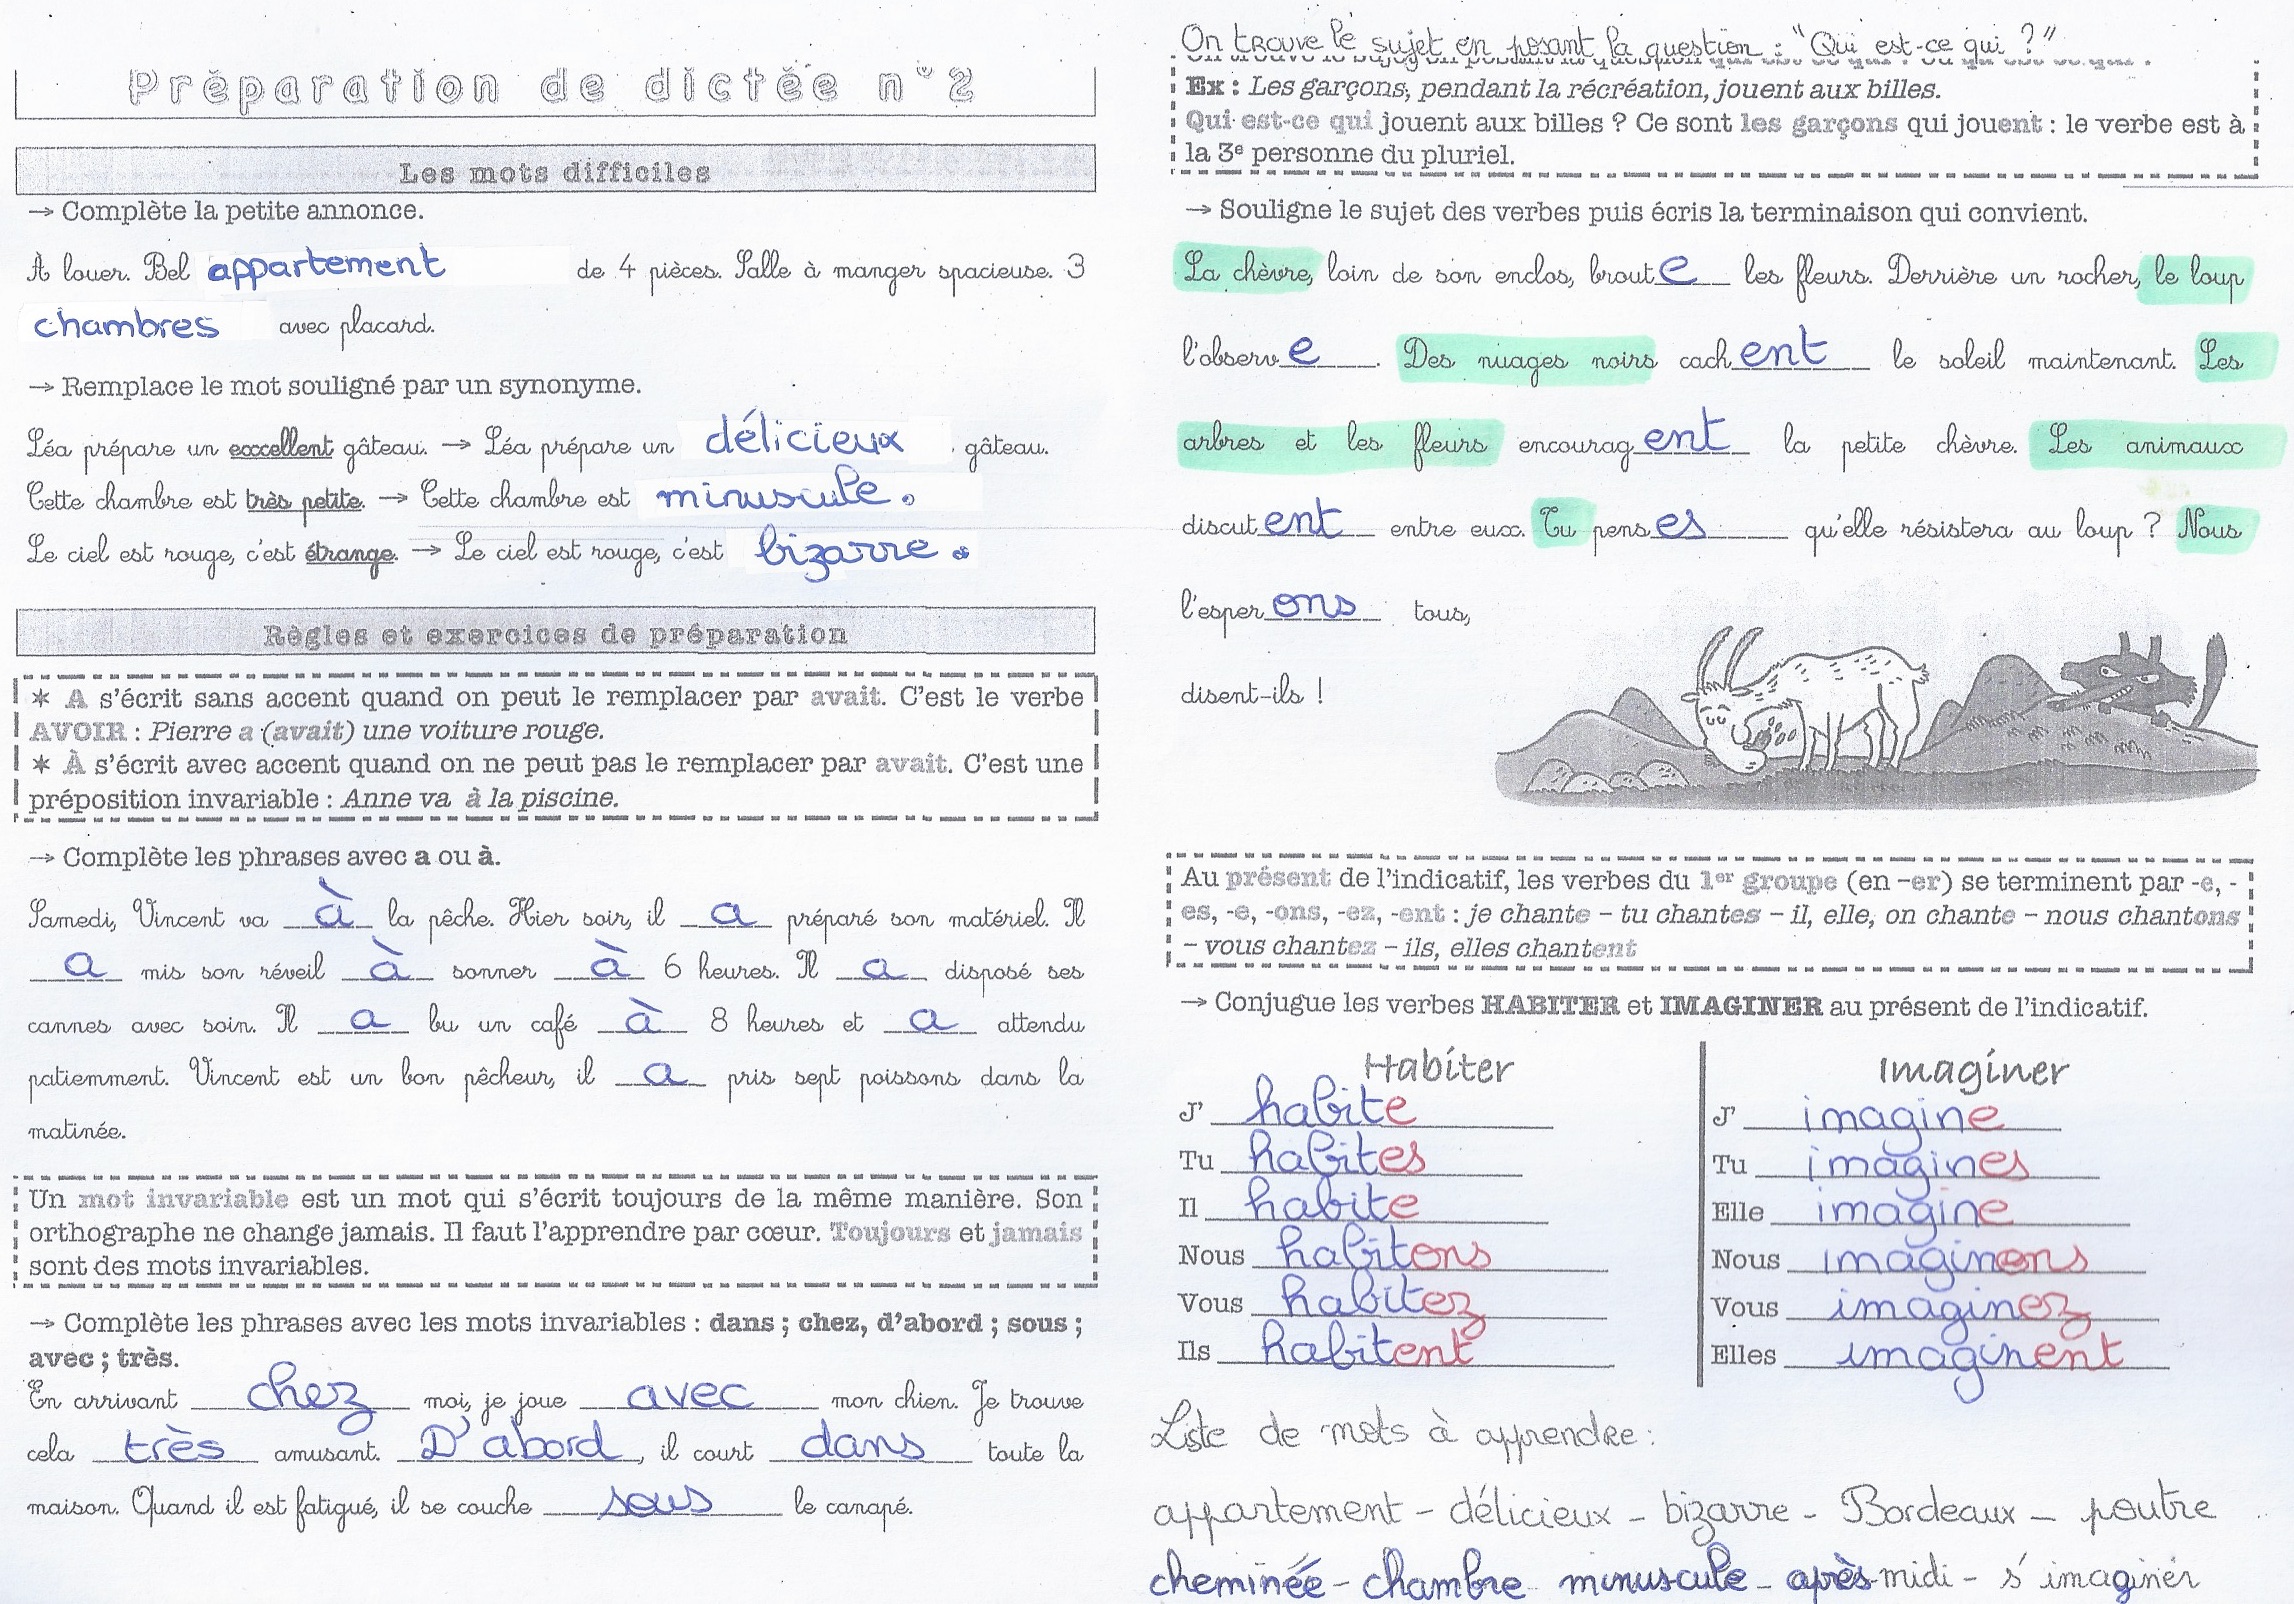 Préparation de dictée n°2
Les mots difficiles
→ Complète la petite annonce.
À louer. Bel appartement de 4 pièces. Salle à manger spacieuse. 3
chambres avec placard.
→ Remplace le mot souligné par un synonyme.
Léa prépare un excellent gâteau. → Léa prépare un délicieux gâteau.
Cette chambre est très petite. → Cette chambre est minuscule.
Le ciel est rouge, c'est étrange. → Le ciel est rouge, c'est bizarre.
Règles et exercices de préparation
✶ A s'écrit sans accent quand on peut le remplacer par avait. C'est le verbe
AVOIR : Pierre a (avait) une voiture rouge.
✶ À s'écrit avec accent quand on ne peut pas le remplacer par avait. C'est une
préposition invariable : Anne va à la piscine.
→ Complète les phrases avec a ou à.
Samedi, Vincent va à la pêche. Hier soir, il a préparé son matériel. Il
a mis son réveil à sonner à 6 heures. Il a disposé ses
cannes avec soin. Il a bu un café à 8 heures et a attendu
patiemment. Vincent est un bon pêcheur, il a pris sept poissons dans la
matinée.
Un mot invariable est un mot qui s'écrit toujours de la même manière. Son
orthographe ne change jamais. Il faut l'apprendre par cœur. Toujours et jamais
sont des mots invariables.
→ Complète les phrases avec les mots invariables : dans ; chez, d'abord ; sous ;
avec ; très.
En arrivant chez moi, je joue avec mon chien. Je trouve
cela très amusant. D'abord, il court dans toute la
maison. Quand il est fatigué, il se couche sous le canapé.
On trouve le sujet en posant la question : "Qui est-ce qui ?"
Ex : Les garçons, pendant la récréation, jouent aux billes.
Qui est-ce qui jouent aux billes ? Ce sont les garçons qui jouent : le verbe est à
la 3e personne du pluriel.
→ Souligne le sujet des verbes puis écris la terminaison qui convient.
La chèvre, loin de son enclos, broute les fleurs. Derrière un rocher, le loup
l'observe. Des nuages noirs cachent le soleil maintenant. Les
arbres et les fleurs encouragent la petite chèvre. Les animaux
discutent entre eux. Tu penses qu'elle résistera au loup ? Nous
l'esperons tous,
disent-ils !
Au présent de l'indicatif, les verbes du 1er groupe (en -er) se terminent par -e, -
es, -e, -ons, -ez, -ent : je chante – tu chantes – il, elle, on chante – nous chantons
– vous chantez – ils, elles chantent
→ Conjugue les verbes HABITER et IMAGINER au présent de l'indicatif.
Habiter
J' habite
Tu habites
Il habite
Nous habitons
Vous habitez
Ils habitent
Imaginer
J' imagine
Tu imagines
Elle imagine
Nous imaginons
Vous imaginez
Elles imaginent
Liste de mots à apprendre :
appartement - délicieux - bizarre - Bordeaux - poutre
cheminée - chambre minuscule - après-midi - s'imaginer